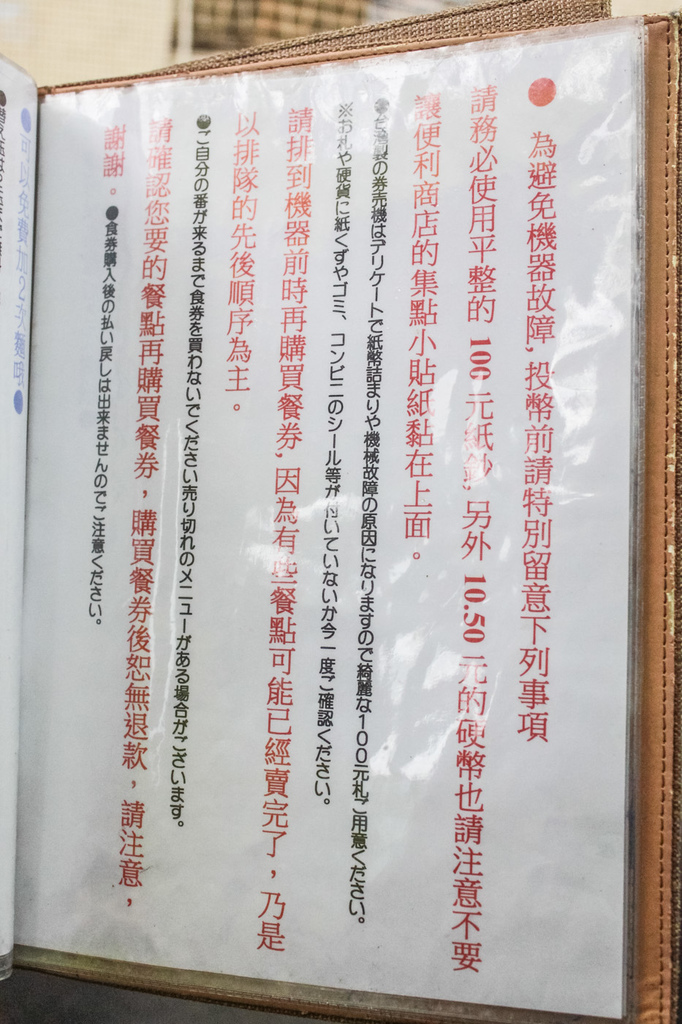 ●為避免機器故障,投幣前請特別留意下列事項
請務必使用平整的 100 元紙鈔,另外 10.50 元的硬幣也請注意不要
讓便利商店的集點小貼紙黏在上面。
の券売機はデリケートで紙幣詰まりや機械故障の原因になりますので綺麗な100元札ご用意ください。
※お札や硬貨に紙くずやゴミ、コンビニのシール等が付いていないか今一度ご確認ください。
請排到機器前時再購買餐券,因為有些餐點可能已經賣完了,乃是
以排隊的先後順序為主。
●ご自分の番が来るまで食券を買わないでください売り切れのメニューがある場合がございます。
請確認您要的餐點再購買餐券,購買餐券後恕無退款,請注意,
謝謝。●食券購入後の払い戻しは出来ませんのでご注意ください。
●可以免費加2次麵哦●